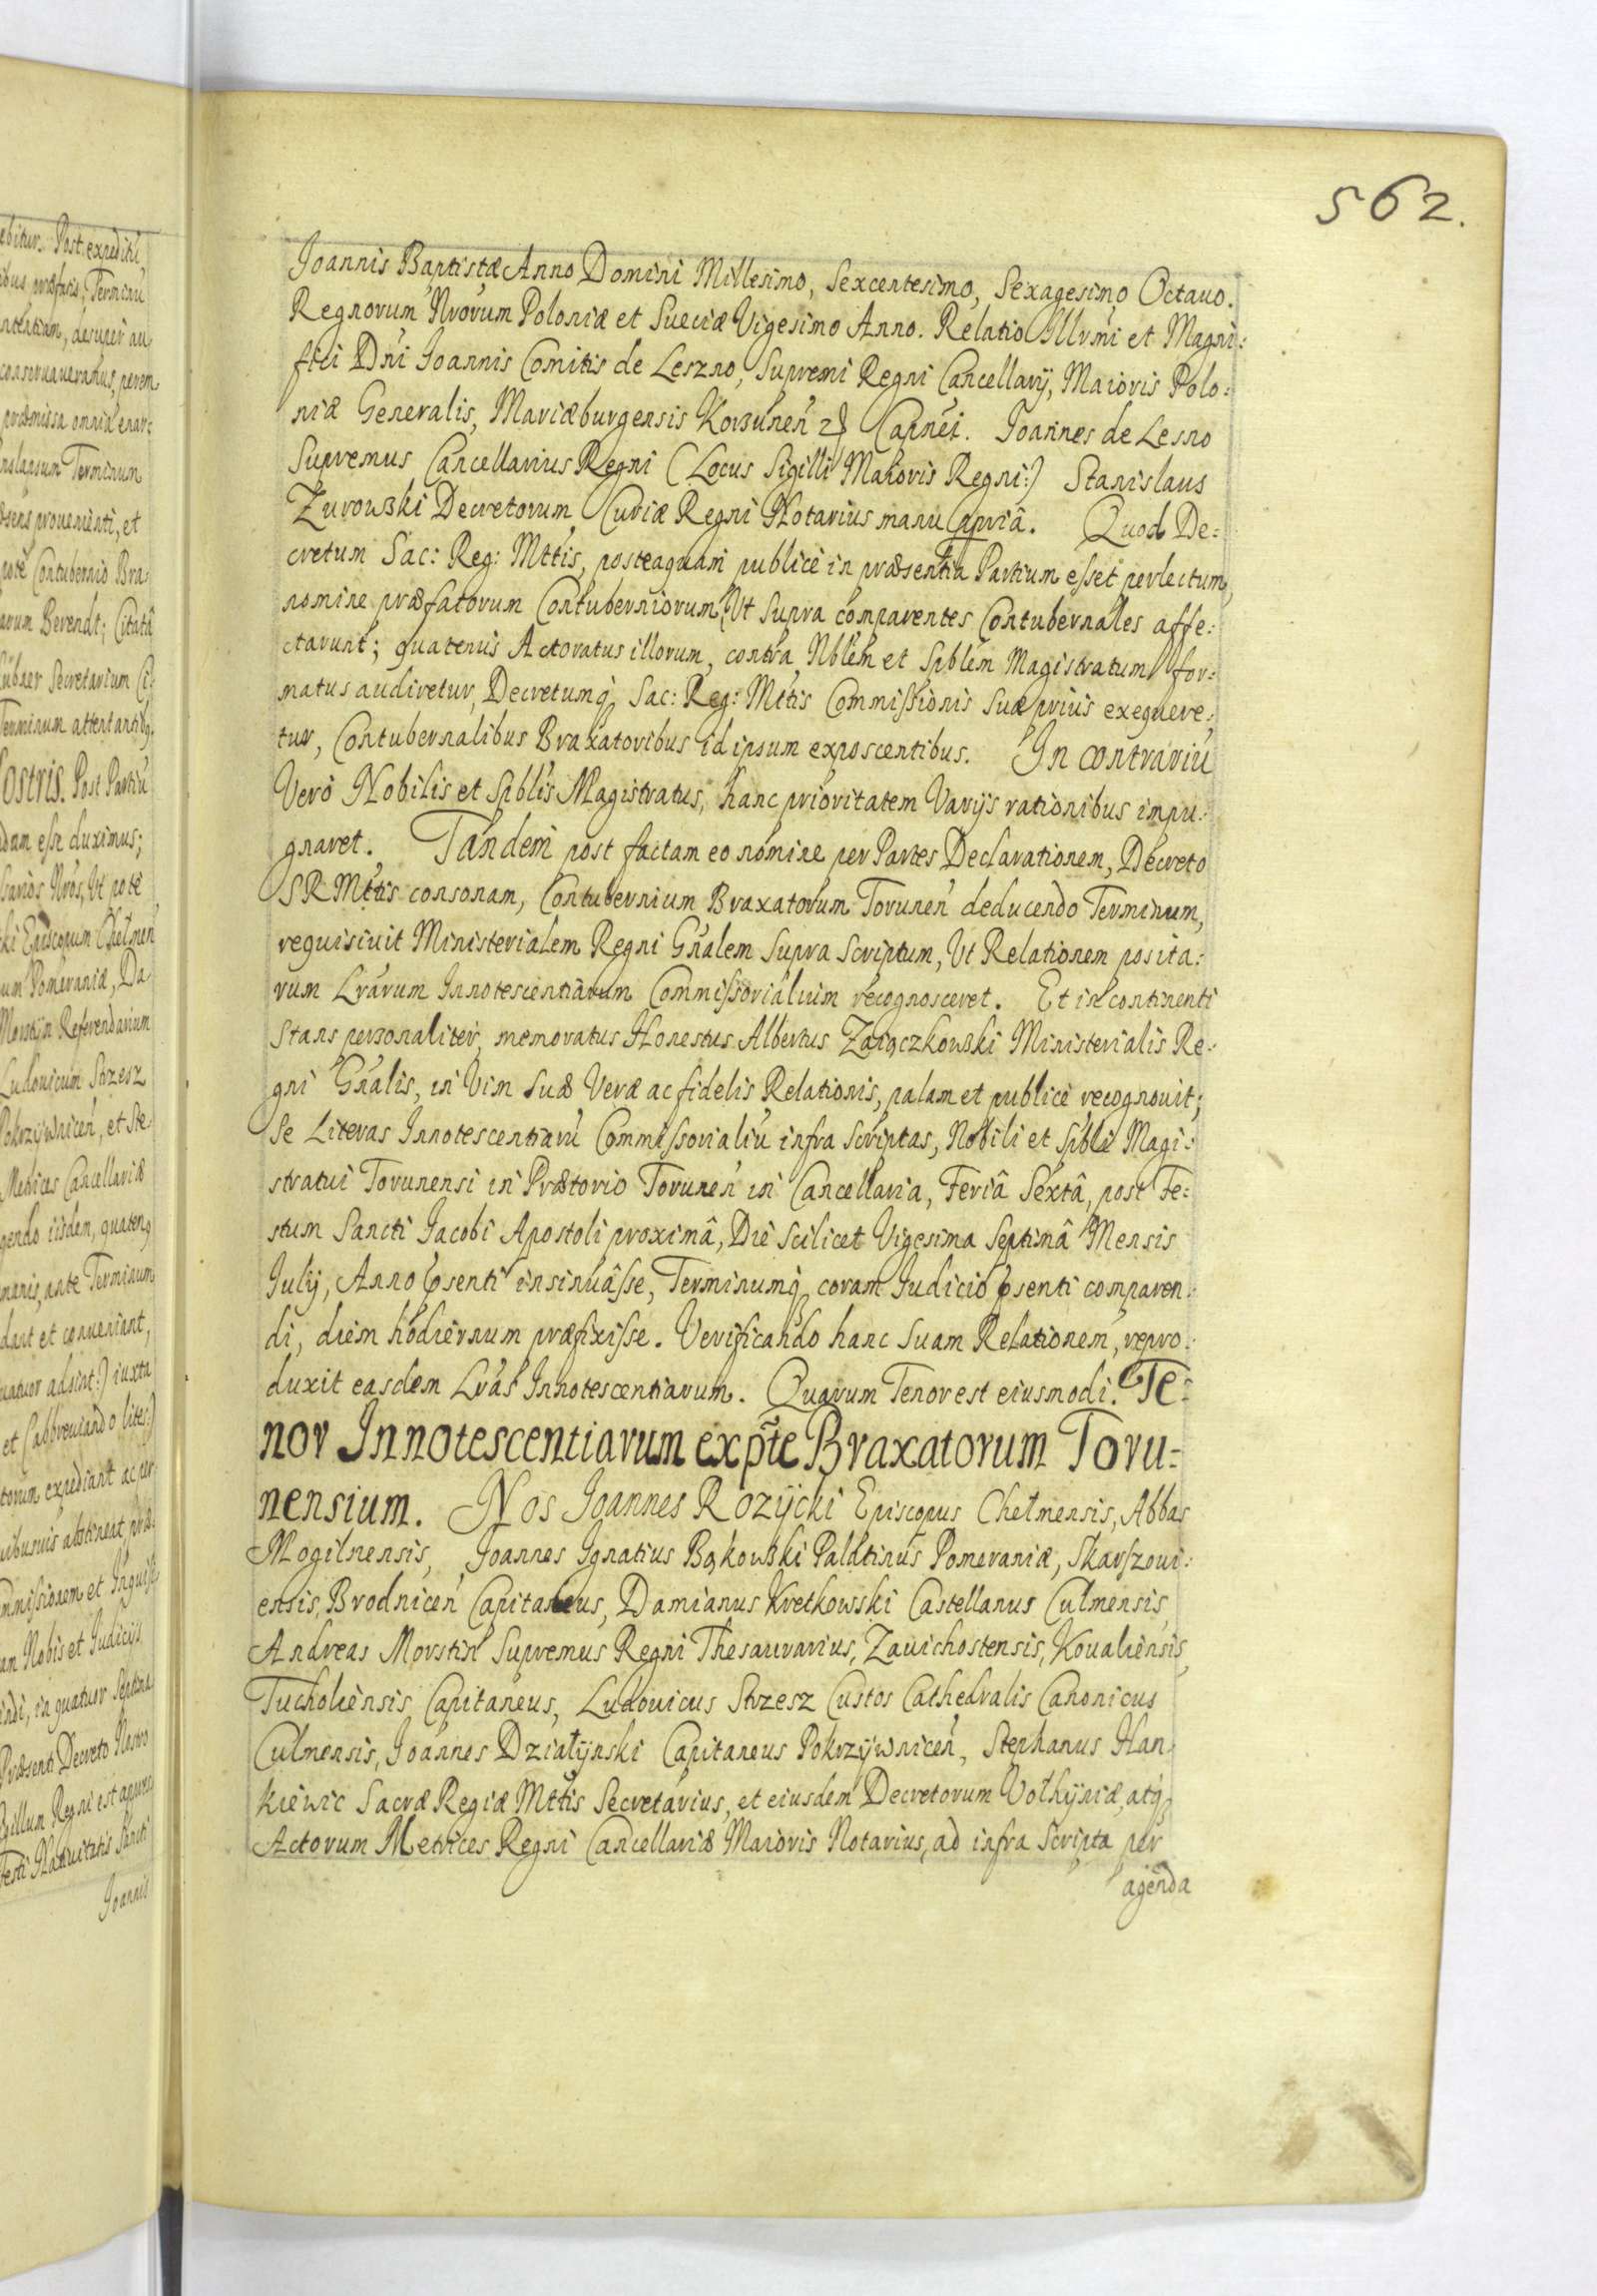 562.
Joannis Baptistæ Anno Domini Millesimo, Sexcentesimo, Sexagesimo Octauo.
Regnorum Nrorum Poloniæ et Sueciæ Vigesimo Anno. Relatio Illvmi et Magni:
fici Dni Joannis Comitis de Leszno, Supremi Regni Cancellarij, Maioris Polo:
niæ Generalis, Mariæburgensis Korsunen̄ Capnei. Joannes de Lesno
Supremus Cancellarius Regni (Locus Sigilli Maioris Regni:) Stanislaus
Zurowski Decretorum Curiæ Regni Notarius manu ppriâ. Quod De:
cretum Sac: Reg: Mttis, posteaquam publicè in præsentia Partium esset perlectum,
nomine præfatorum Contuberniorum, Ut supra comparentes Contubernales affe:
ctarunt; quatenus Actoratus illorum, contra Nblem et Spblem Magistratum for:
matus audiretur, Decretumq Sac: Reg: Mttis Commissionis suæ prius exequere:
tur, Contubernalibus Braxatoribus id ipsum exposcentibus. In contrariū
Verò Nobilis et Spblis Magistratus, hanc prioritatem Varijs rationibus impu:
gnaret. Tandem post factam eo nomine per Partes Declarationem, Decreto
SRMttis consonam, Contubernium Braxatorum Torunen̄ deducendo Terminum,
requisiuit Ministerialem Regni Gnalem supra scriptum, Ut Relationem posita:
rum Lrarum Innotescentiarum Commissorialium recognosceret. Et in continenti
stans personaliter, memoratus Honestus Albertus Zaiączkowski Ministerialis Re:
gni Gnalis, in Vim suæ Veræ ac fidelis Relationis, palam et publicè recognouit;
Se Literas Innotescentiarū Commissorialiū infra scriptas, Nobili et Spbli Magi:
stratui Torunensi in Prætorio Torunen̄ in Cancellaria, Feriâ Sextâ, post Fe:
stum Sancti Jacobi Apostoli proximâ, Die scilicet Vigesima Septimâ Mensis
Julij, Anno psenti insinuâsse, Terminumq coram Iudicio psenti comparen:
di, diem hodiernum præfixisse. Verificando hanc suam Relationem, repro:
duxit easdem Lras Innotescentiarum. Quarum Tenor est eiusmodi. Te:
nor Innotescentiarum ex pte Braxatorum Toru:
nensium. Nos Joannes Rozijcki Episcopus Chelmensis, Abbas
Mogilnensis, Joannes Ignatius Bąkowski Palatinus Pomeraniæ, Skarszoui:
ensis, Brodnicen̄ Capitaneus, Damianus Kretkowski Castellanus Culmensis,
Andreas Morstin Supremus Regni Thesaurarius, Zauichostensis, Koualiensis,
Tucholiensis Capitaneus, Ludouicus Strzesz Custos Cathedralis Canonicus
Culmensis, Joannes Działijnski Capitaneus Pokrzijwnicen̄, Stephanus Han:
kiewic Sacræ Regiæ Mttis Secretarius, et eiusdem Decretorum Vołhijniæ, atq
Actorum Metrices Regni Cancellariæ Maioris Notarius, ad infra scripta per
agenda